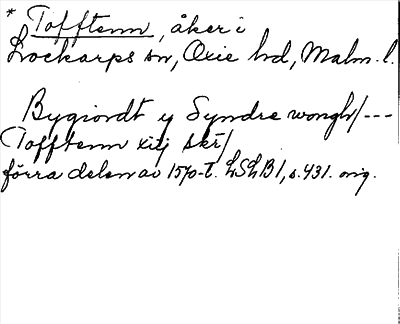 * Tofftenn, åker i
Lockarps sn, Oxie hd, Malm. l.
Bygiordt y Syndre wongh/---
Tofftenn xiij skr/
förra delen av 1570-t. LSLB 1, s. 431. orig.